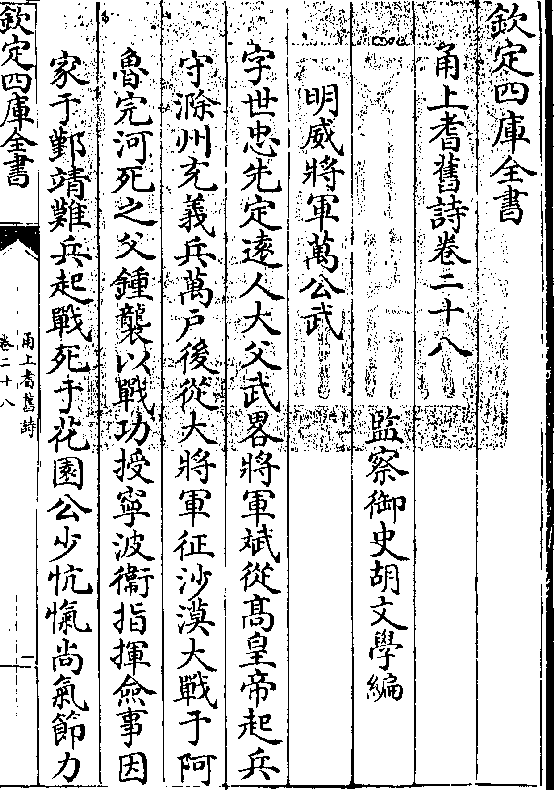 欽定四庫全書
甬上耆舊詩卷二十八
監察御史胡文學編
明威將軍萬公武
字世忠先定逺人大父武畧將軍斌從髙皇帝起兵
守滁州充義兵萬户後從大將軍征沙漠大戰于阿
魯完河死之父鍾襲以戰功授寧波衞指揮僉事因
家于鄞靖難兵起戰死于花園公少忼愾尚氣節力
欽定四庫全書
甬上耆舊詩
卷二十八
一